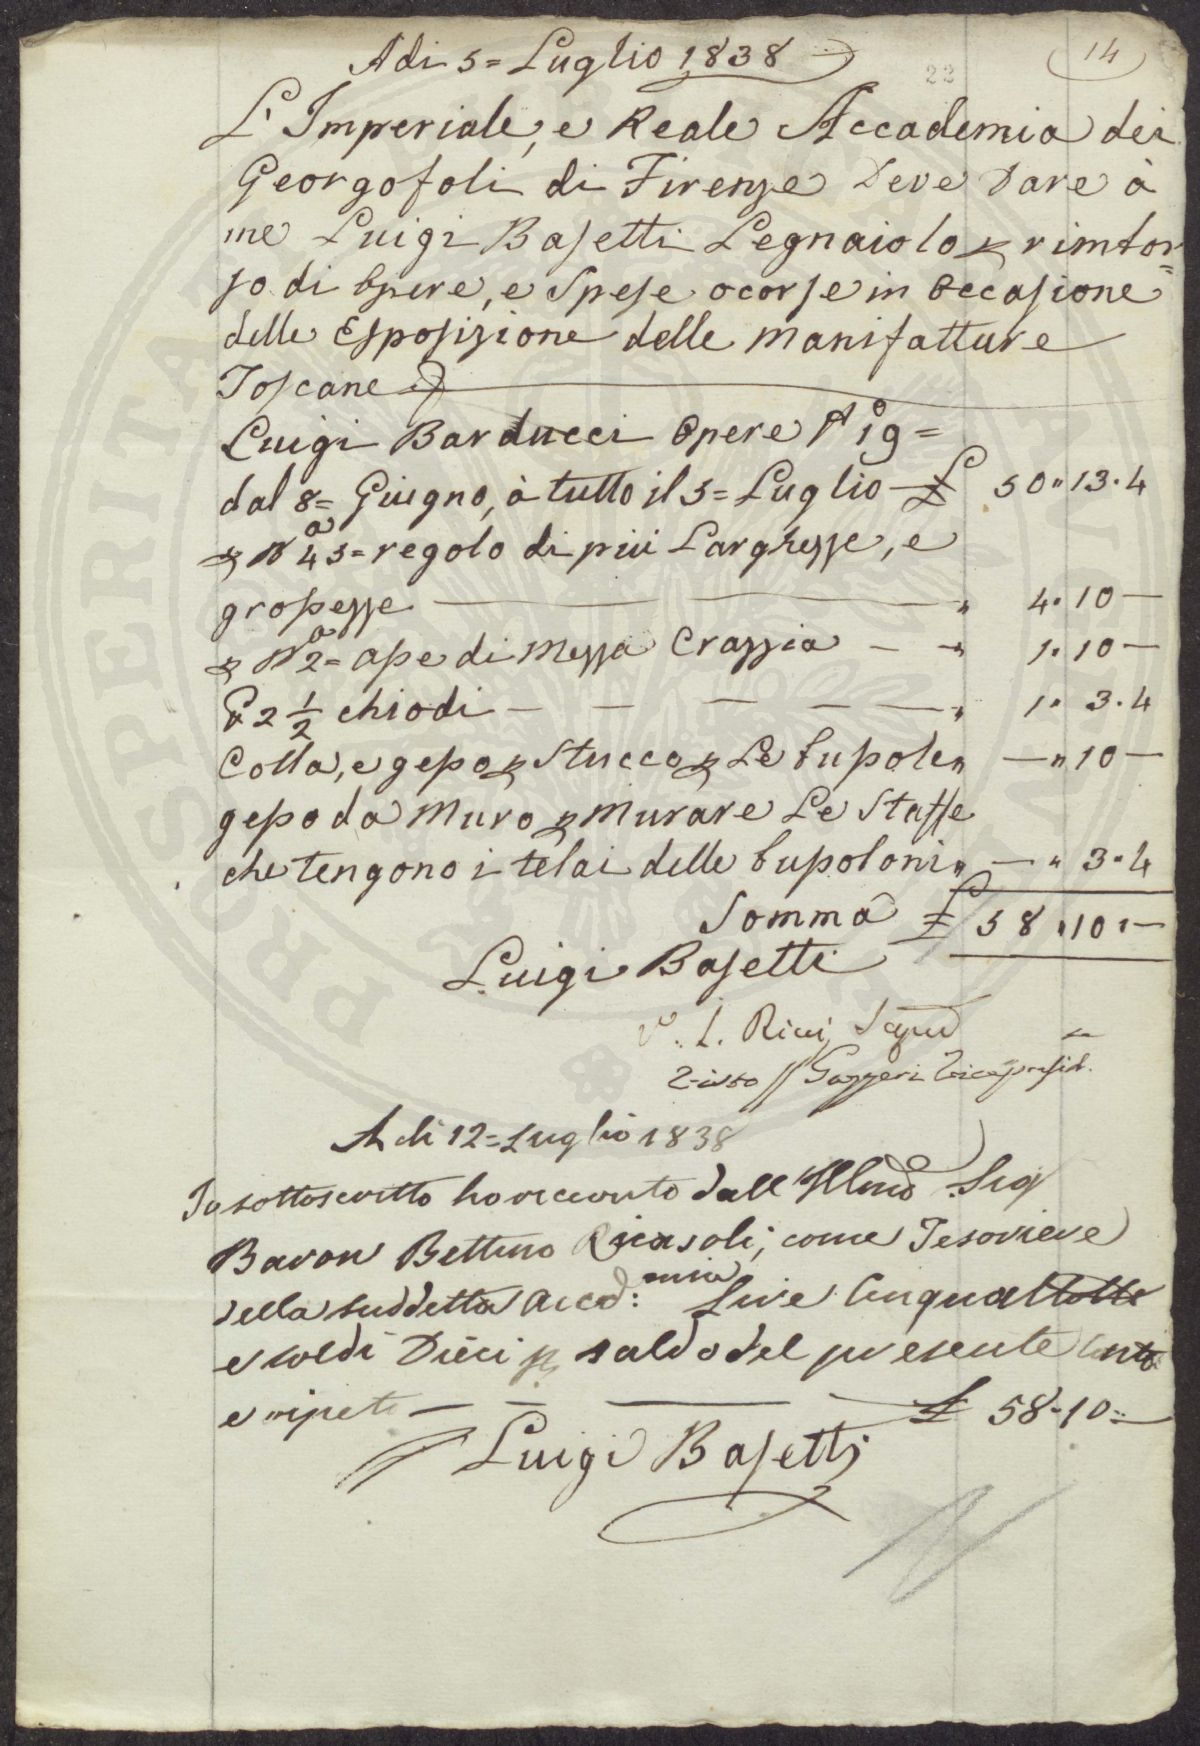 Adi 5= Luglio 1838
14
22
L'Imperiale, e Reale Accademia dei
Georgofoli di Firenze Deve Dare à
me Luigi Basetti Legnaiolo p rimbor=
so di Opere, e Spese ocorse in Occasione
delle Esposizione delle Manifatture
Toscane
Luigi Barducci Opere N° 19=
dal 8= Giugno, à tutto il 5= Luglio £ 50 " 13 . 4
p Na 45= regolo di più Larghezze, e
grossezze " 4 " 10 —
p Na 2= ase di Mezza Crazzia — " 1 " 10 —
lb 2 1/2 chiodi — — — — " 1 " 3 . 4
Colla, e geso p Stucco p Le Cupole " — " 10 —
geso da Muro p Murare Le Staffe
che tengono i telai delle Cupoloni " — " 3 " 4
Somma £ 58 " 10 " —
Luigi Basetti
V° L. Ricci
Visto Gazzeri Vicepresid.
A di 12= Luglio 1838
Io sottoscritto ho ricevuto dall' Illmo Sig
Baron Bettino Ricasoli, come Tesoriere
della suddetta Accad:mia Lire Cinquantotto
e soldi Dieci p saldo del presente Conto
e ripeto — — £ 58 - 10 =
Luigi Basetti
PROSPERITATI PUBLICAE AUGENDAE